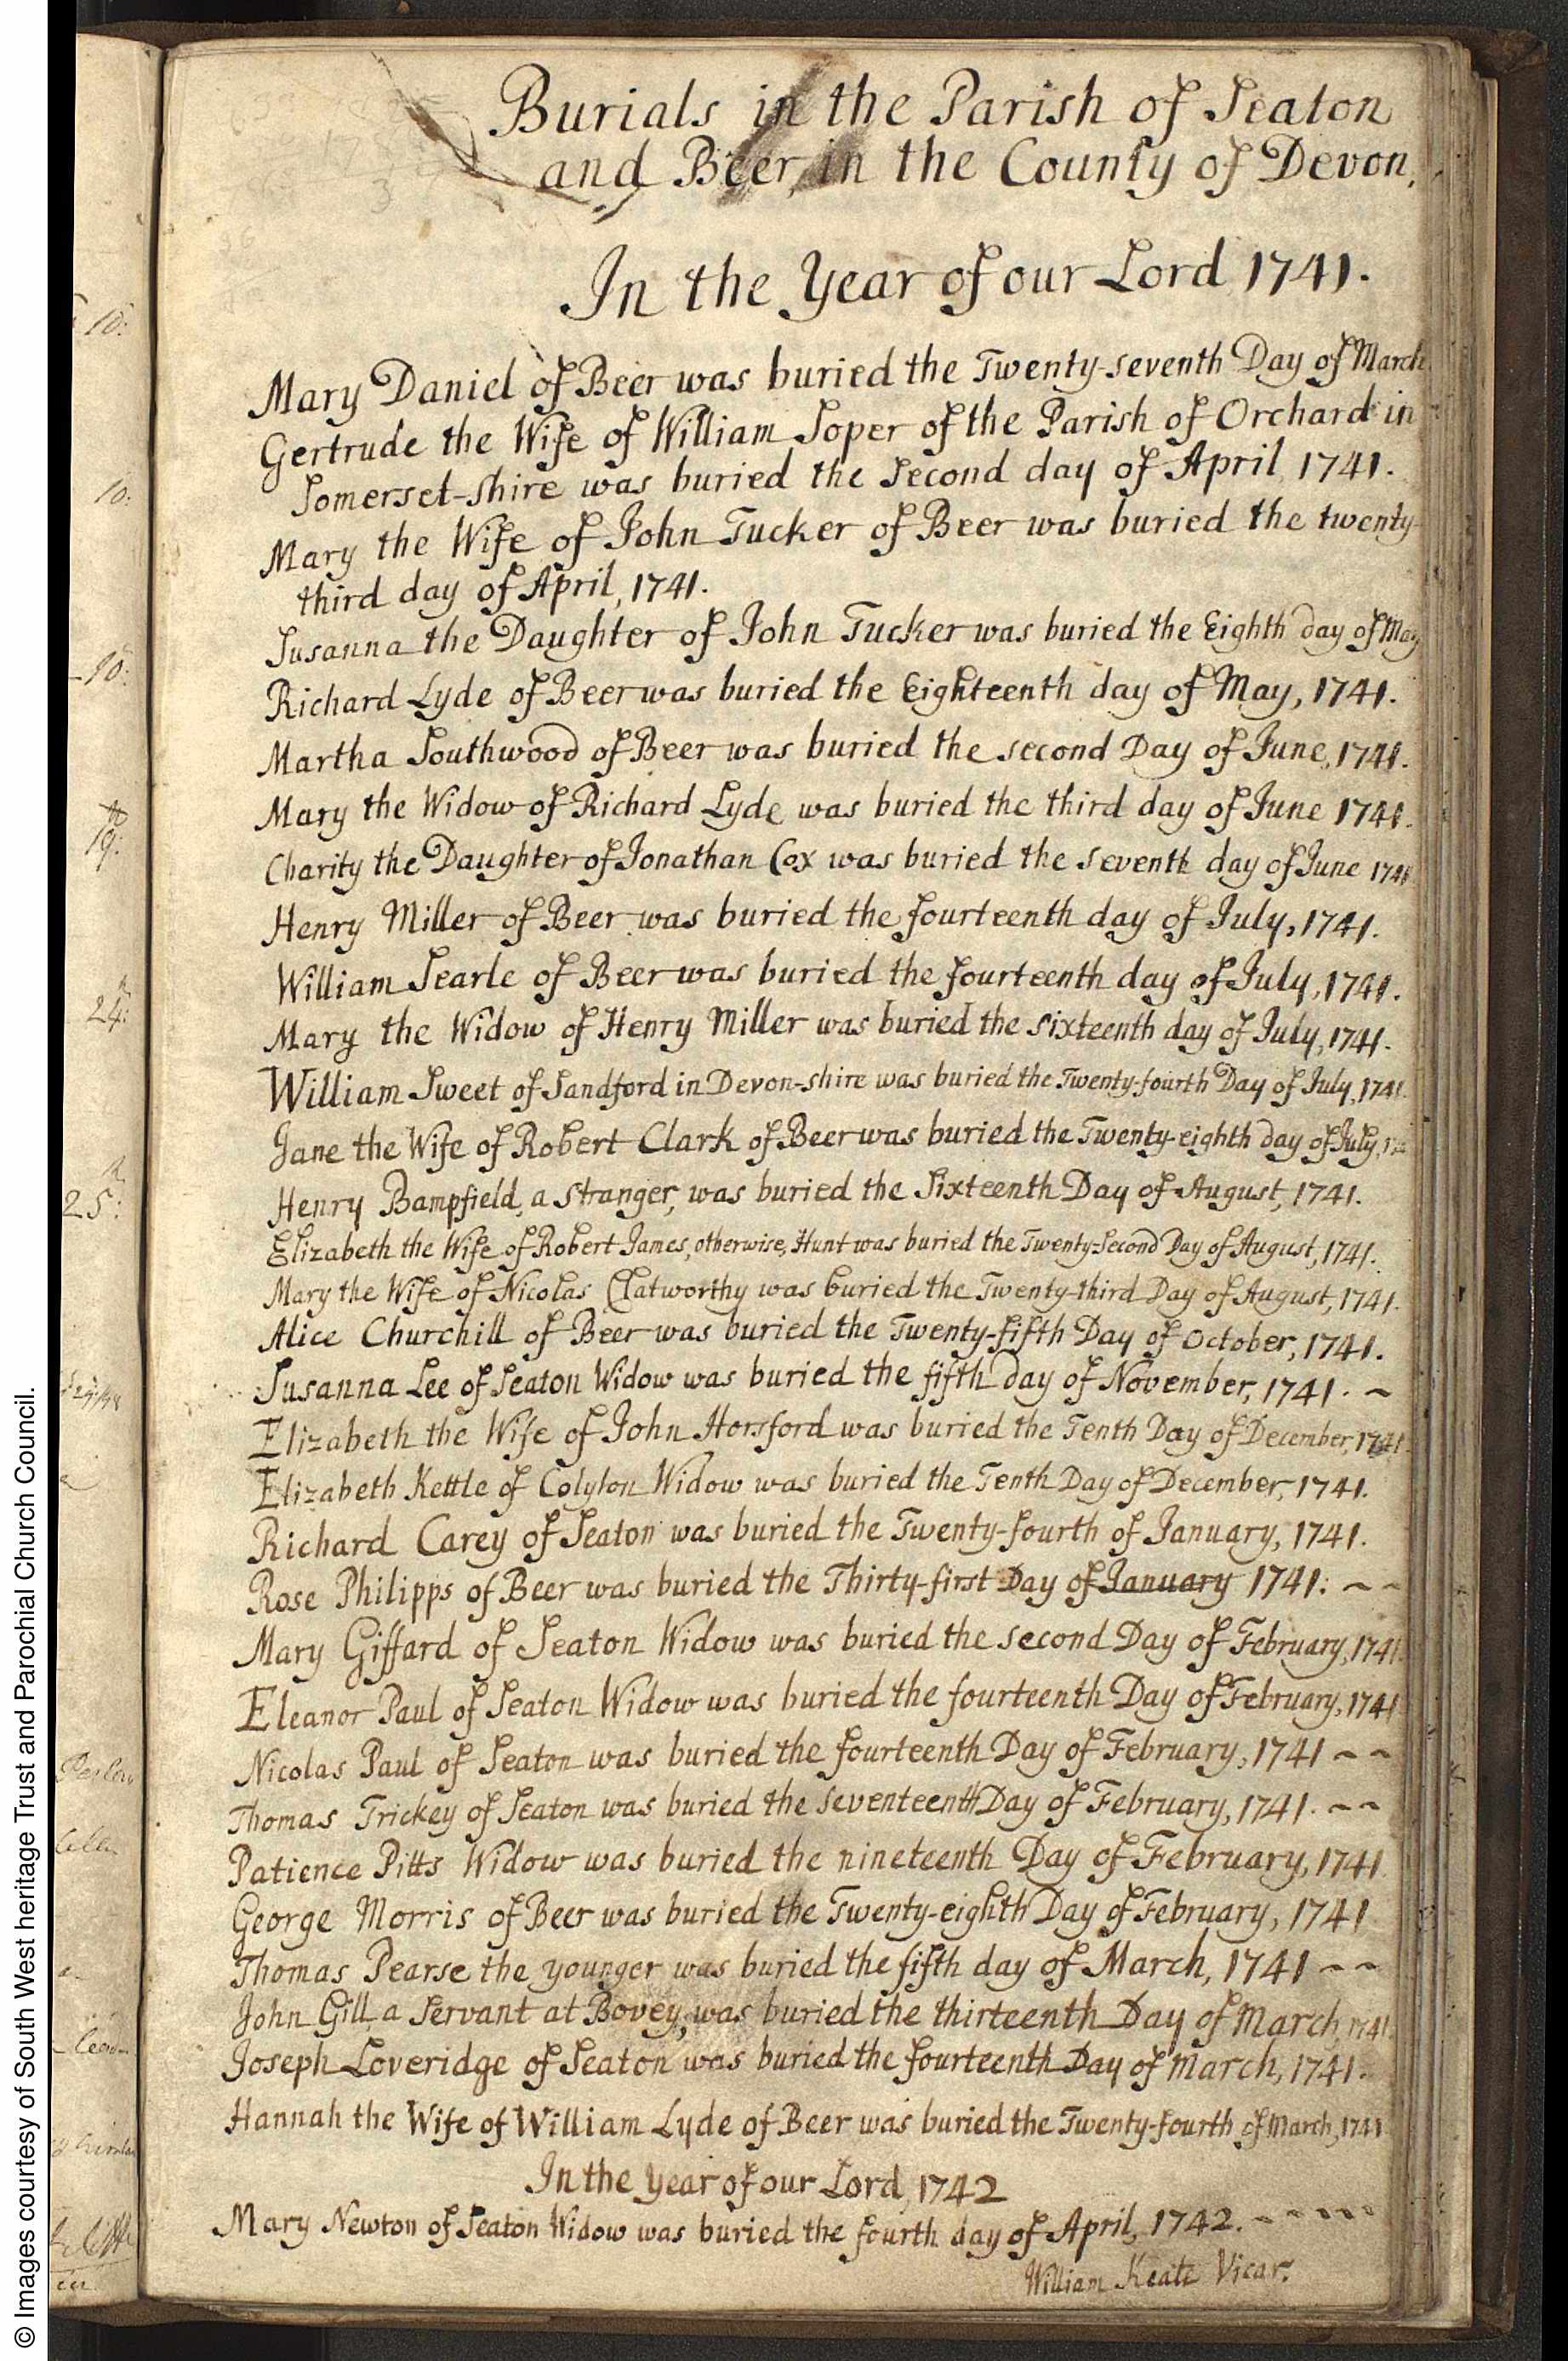 Burials in the Parish of Seaton
and Beer, in the County of Devon,
In the Year of our Lord 1741.
Mary Daniel of Beer was buried the Twenty-seventh Day of March
Gertrude the Wife of William Soper of the Parish of Orchard in
Somerset-shire was buried the Second day of April 1741.
Mary the Wife of John Tucker of Beer was buried the twenty-
third day of April, 1741.
Susanna the Daughter of John Tucker was buried the Eighth day of May
Richard Lyde of Beer was buried the Eighteenth day of May, 1741.
Martha Southwood of Beer was buried the second Day of June, 1741.
Mary the Widow of Richard Lyde was buried the third day of June 1741.
Charity the Daughter of Jonathan Cox was buried the seventh day of June 1741
Henry Miller of Beer was buried the fourteenth day of July, 1741.
William Searle of Beer was buried the fourteenth day of July, 1741.
Mary the Widow of Henry Miller was buried the sixteenth day of July, 1741.
William Sweet of Sandford in Devon-shire was buried the Twenty-fourth Day of July, 1741.
Jane the Wife of Robert Clark of Beer was buried the Twenty-eighth day of July,
Henry Bampfield, a Stranger, was buried the Sixteenth Day of August, 1741.
Elizabeth the Wife of Robert James, otherwise, Hunt was buried the Twenty-Second Day of August, 1741.
Mary the Wife of Nicolas Clatworthy was buried the Twenty-third Day of August, 1741.
Alice Churchill of Beer was buried the Twenty-fifth Day of October, 1741.
Susanna Lee of Seaton Widow was buried the fifth day of November, 1741. ~
Elizabeth the Wife of John Horsford was buried the Tenth Day of December, 1741.
Elizabeth Kettle of Colyton Widow was buried the Tenth Day of December, 1741.
Richard Carey of Seaton was buried the Twenty-fourth of January, 1741.
Rose Philipps of Beer was buried the Thirty-first Day of January 1741: ~ ~
Mary Giffard of Seaton Widow was buried the second Day of February, 1741.
Eleanor Paul of Seaton Widow was buried the fourteenth Day of February, 1741
Nicolas Paul of Seaton was buried the fourteenth Day of February, 1741 ~ ~
Thomas Trickey of Seaton was buried the seventeenth Day of February, 1741. ~ ~
Patience Pitts Widow was buried the nineteenth Day of February, 1741
George Morris of Beer was buried the Twenty-eighth Day of February, 1741
Thomas Pearse the younger was buried the fifth day of March, 1741 ~ ~
John Gill a Servant at Bovey, was buried the thirteenth Day of March, 1741.
Joseph Loveridge of Seaton was buried the fourteenth Day of March, 1741.
Hannah the Wife of William Lyde of Beer was buried the Twenty-fourth of March, 1741
In the Year of our Lord, 1742
Mary Newton of Seaton Widow was buried the fourth day of April, 1742. ~ ~ ~ ~ ~
William Keate Vicar.
10:
10:
10:
19:
24:
25:
© Images courtesy of South West heritage Trust and Parochial Church Council.